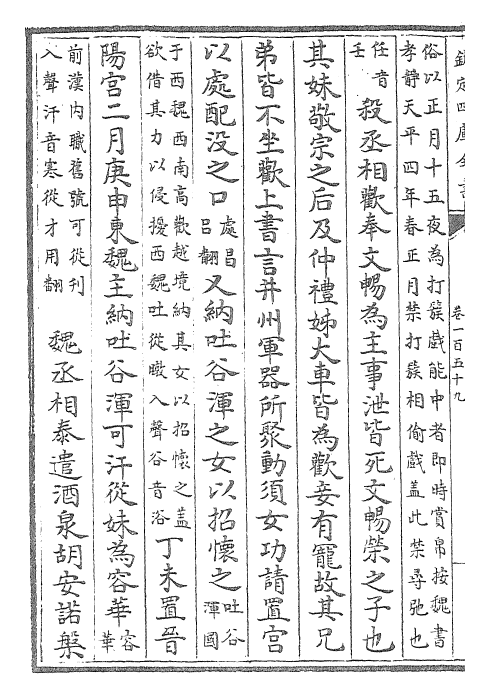 欽定四庫全書
卷一百五十九
俗以正月十五夜為打簇戲能中者即時賞帛按魏書
孝静天平四年春正月禁打簇相偷戲盖此禁尋弛也
任音
壬
殺丞相歡奉文暢為主事泄皆死文暢榮之子也
其妹敬宗之后及仲禮姊大車皆為歡妾有寵故其兄
弟皆不坐歡上書言并州軍器所聚動須女功請置宫
以處配没之口
處昌
吕翻
又納吐谷渾之女以招懷之
吐谷
渾國
于西魏西南高歡越境納其女以招懷之盖
欲借其力以侵擾西魏吐從暾入聲谷音浴
丁未置晉
陽宫二月庚申東魏主納吐谷渾可汗從妹為容華
容
華
前漢内職舊號可從刋
入聲汗音寒從才用翻
魏丞相泰遣酒泉胡安諾槃